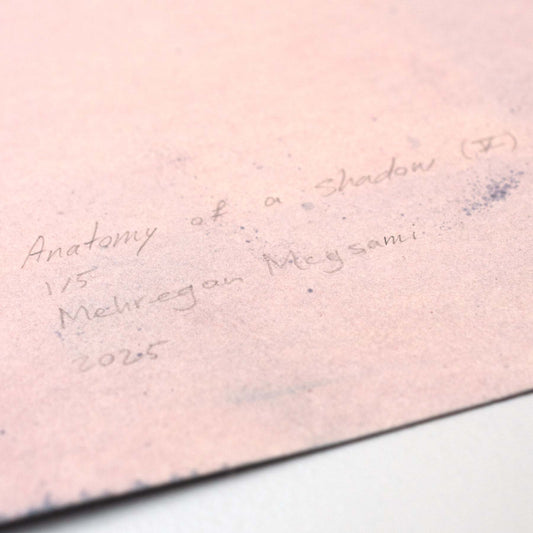 Anatomy of a shadow (V)
1/5
Mehregan Meysami
2025